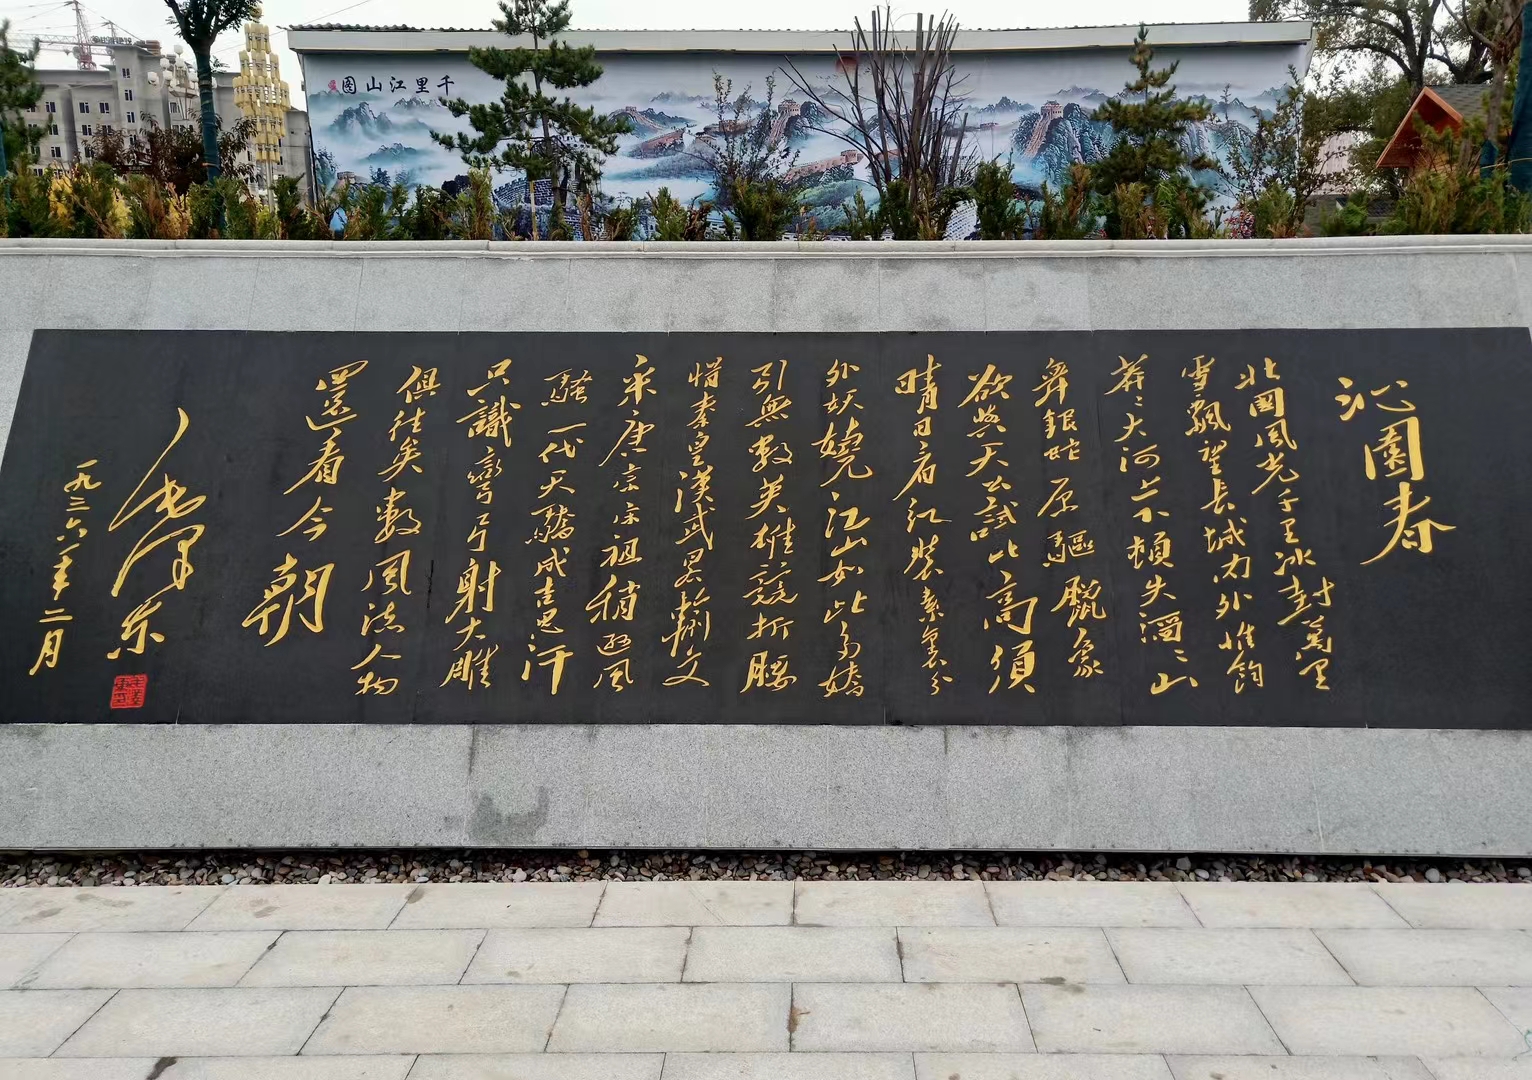 千里江山圖
沁園春
北國風光千里冰封萬里
雪飄望長城内外惟餘
莽〻大河上下頓失滔〻山
舞銀蛇原驅臘象
欲與天公試比高須
晴日看紅裝素裹分
外妖嬈江山如此多嬌
引無數英雄競折腰
惜秦皇漢武略輸文
采唐宗宋祖稍遜風
騷一代天驕成吉思汗
只識彎弓射大雕
俱往矣數風流人物
還看今朝
毛澤东
一九三六年二月